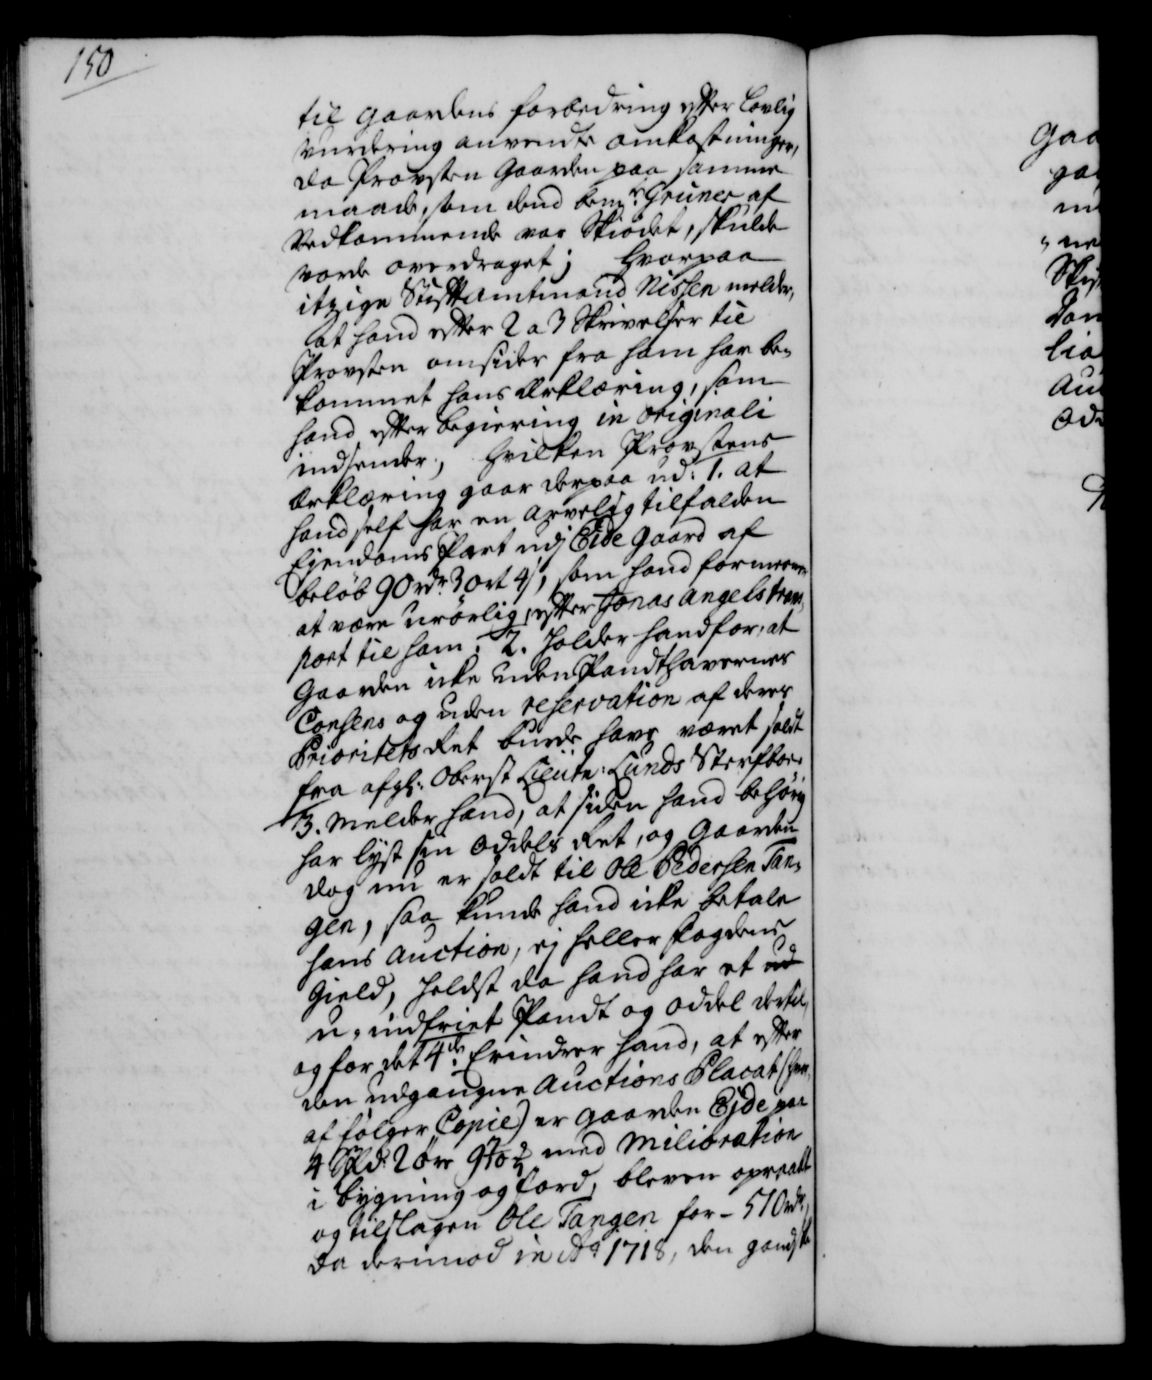 150
til Gaardens forbedring efter Lovlig
Vurdering anvendte omkostninger,
da Provsten Gaarden paa samme
maade, som dend bem:te Grüner af
Vedkommende var Skiødet, skulde
vorde overdraget; Hvorpaa
itzige Stiftamtmand Nissen melder,
at hand efter 2 a 3 Skrivelser til
Provsten omsider fra ham har be-
kommet hans Erklæring, som
hand efter begiering in originali
indsender, Hvilken Provstens
Erklæring gaar derpaa ud: 1. at
hand self har en arvelig tilfalden
Ejendoms Part udj Eide Gaard af
beløb 90 rdr 3 ort 4 s, som hand formeener
at være urørlig, efter Jonas Angels trans-
port til ham; 2. Holder hand for, at
Gaarden icke uden Pandthavernes
Consens og uden reservation af deres
Prioritets Ret burde have været soldt
fra afg: Oberst Lieutn: Lunds Sterfboe
3. Melder hand, at siden hand behørig
har lyst sin Oddels Ret, og Gaarden
dog nu er soldt til Ole Pedersen Tan-
gen, saa kunde hand icke betale
hans Auction, ej heller Fogdens
Gield, helst da hand har et ud
u-indfriet Pandt og Oddel dertil,
og for det 4de Erindrer hand, at efter
den udgangne Auctions Placat (hvor-
af følger Copie) er Gaarden Ejde paa
4 Spd: 2 øre med Milioration
i bygning og Jord, bleven opraabt
og tilslagen Ole Tangen for - 510 rdr,
da derimod in Ao 1718, den gandske
Gaa